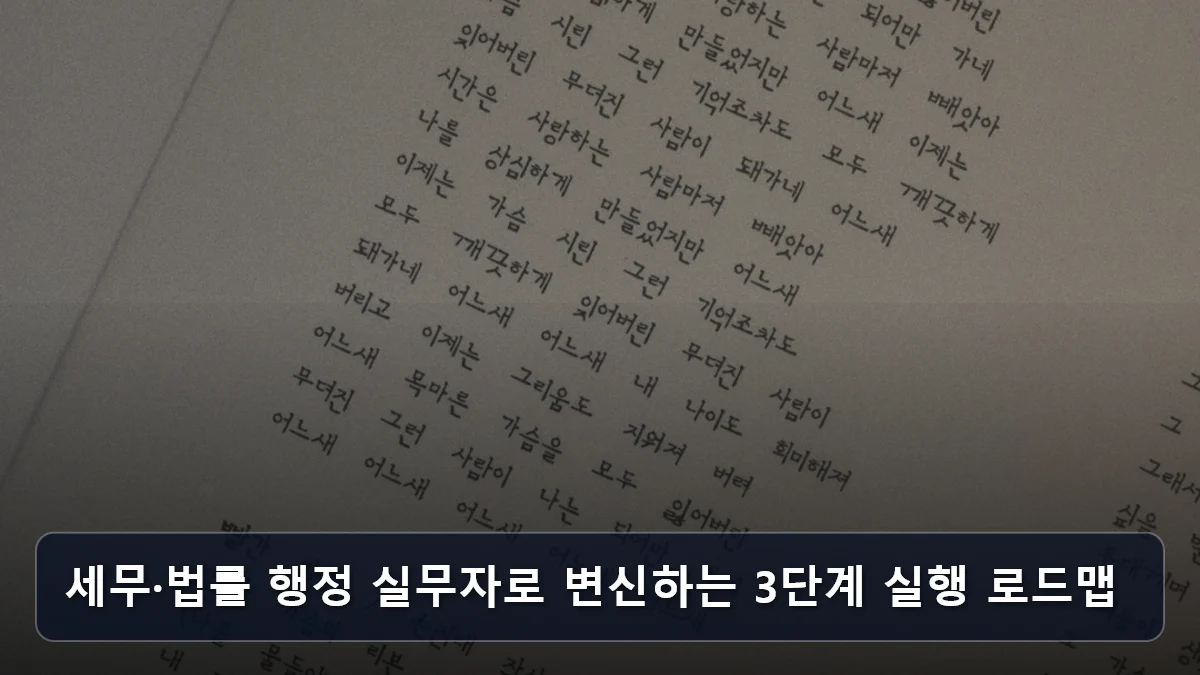 되어만 가네
사람마저 빼앗아
만들었지만 어느새 이제는
시린 그런 기억조차도 모두 깨끗하게
잊어버린 무뎌진 사람이 돼가네 어느새
시간은 사랑하는 사람마저 빼앗아
나를 상심하게 만들었지만 어느새
이제는 가슴 시린 그런 기억조차도
모두 깨끗하게 잊어버린 무뎌진 사람이
돼가네 어느새 어느새 내 나이도 희미해져
버리고 이제는 그리움도 지워져 버려
어느새 목마른 가슴을 모두 잃어버린
무뎌진 그런 사람이 나는 되어만
어느새 어느새 어느새
그래서
세무·법률 행정 실무자로 변신하는 3단계 실행 로드맵